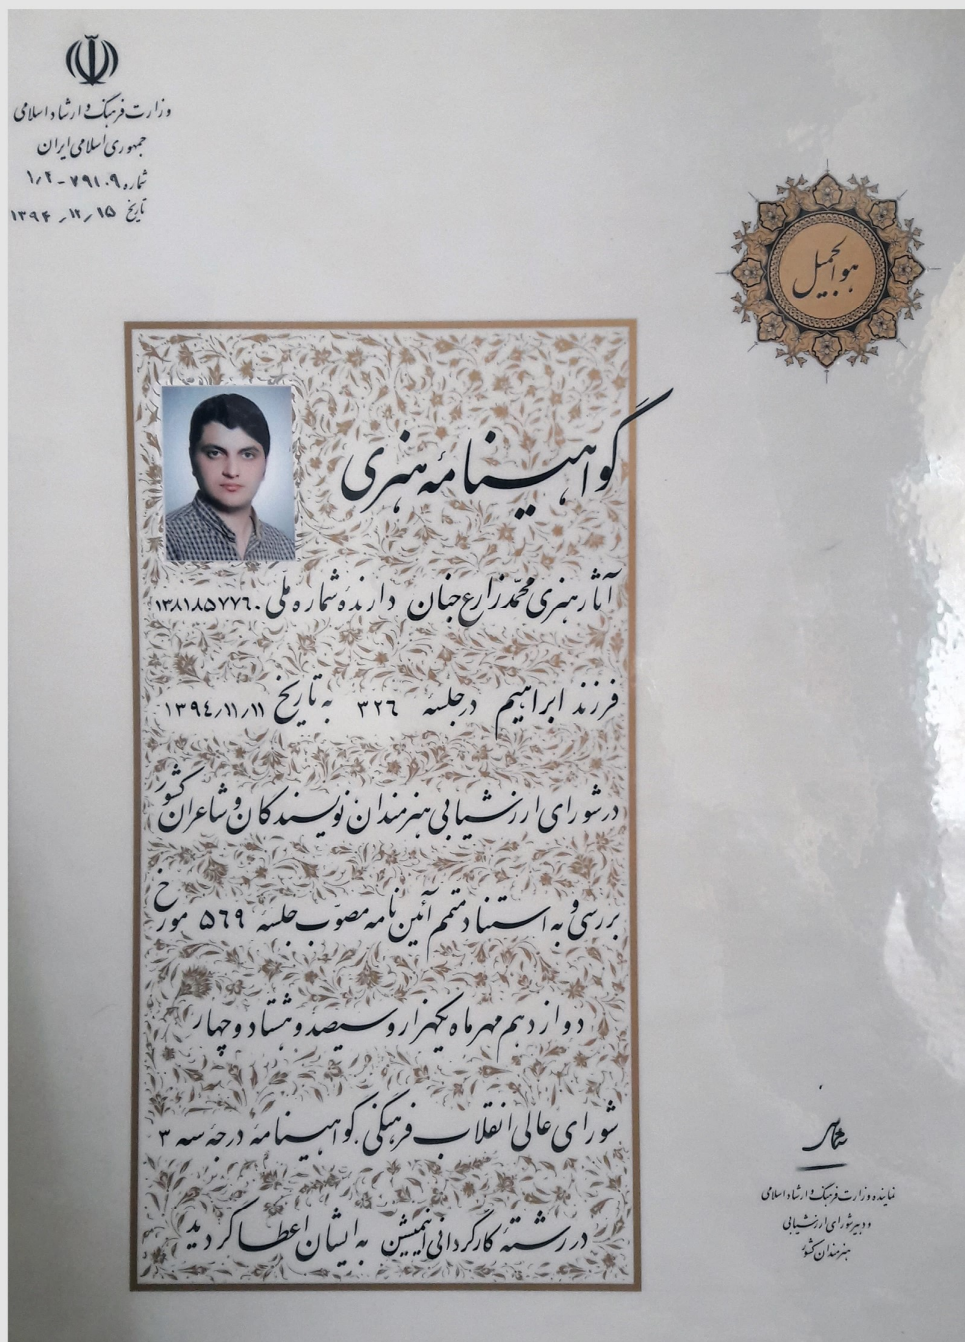 وزارت فرهنگ و ارشاد اسلامی
جمهوری اسلامی ایران
شماره ۷۹۱۰۹-۱/۲
تاریخ ۱۳۹۴/۱۲/۱۵
هو الجمیل
گواهینامهٔ هنری
آثار هنری محمد زارع جنان دارنده شماره ملی ۱۳۸۱۸۵۷۷۶۰
فرزند ابراهیم در جلسهٔ ۳۲۶ به تاریخ ۱۳۹٤/۱۱/۱۱
در شورای ارزشیابی هنرمندان نویسندگان و شاعران کشور
بررسی و به استناد متمم آئین نامه مصوب جلسهٔ ۵۶۹ مورخ
دوازدهم مهرماه یکهزار و سیصد و هشتاد و چهار
شورای عالی انقلاب فرهنگی گواهینامه درجه سه ۳
در رشتهٔ کارگردانی انیمیشن به ایشان اعطا گردید
نماینده وزارت فرهنگ و ارشاد اسلامی
و دبیر شورای ارزشیابی
هنرمندان کشور